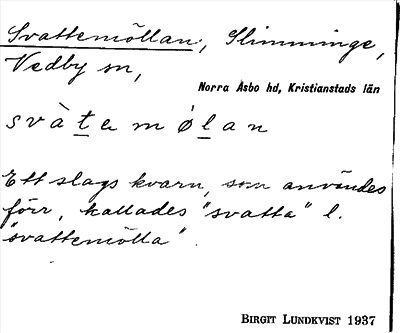 Svattemöllan, Slimminge,
Vedby sn,
Norra Åsbo hd, Kristianstads län
svàtemølan
Ett slags kvarn, som användes
förr, kallades "svatta" l.
"svattemölla".
BIRGIT LUNDKVIST 1937